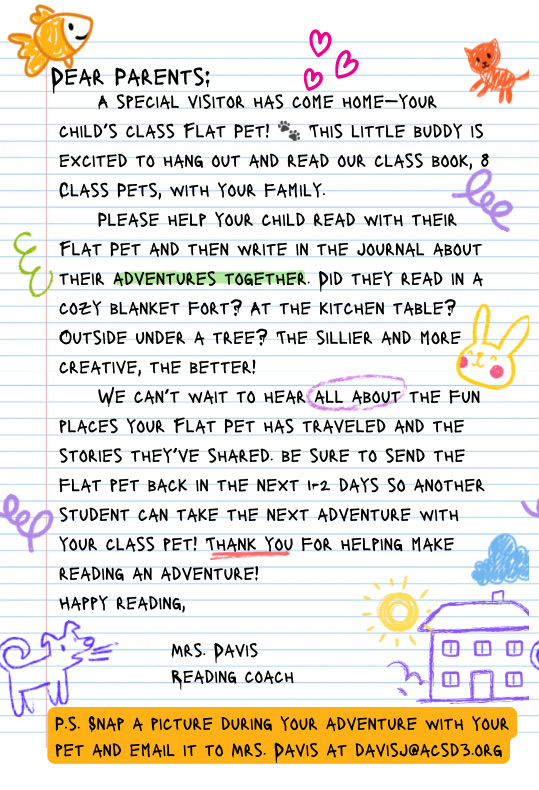 Dear Parents:
A special visitor has come home—your
child's class Flat Pet! 🐾 This little buddy is
excited to hang out and read our class book, 8
Class Pets, with your family.
Please help your child read with their
Flat Pet and then write in the journal about
their adventures together. Did they read in a
cozy blanket fort? At the kitchen table?
Outside under a tree? The sillier and more
creative, the better!
We can't wait to hear all about the fun
places your Flat Pet has traveled and the
stories they've shared. Be sure to send the
Flat Pet back in the next 1-2 days so another
student can take the next adventure with
your class pet! Thank you for helping make
reading an adventure!
Happy Reading,
Mrs. Davis
Reading Coach
P.S. Snap a picture during your adventure with your
pet and email it to Mrs. Davis at davisj@acsd3.org